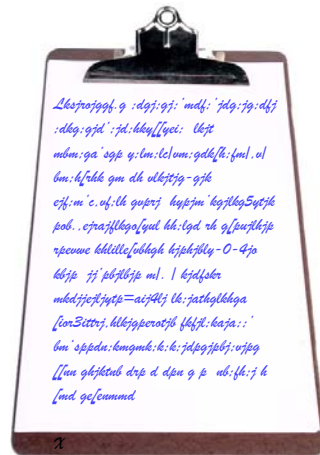 Lksjrojggf.g :dgj:gj:'mdf:'jdg:jg:dfj
:dkg:gjd':jd:hky[[yei:  lkjt
mbm:ga'sgp y:lm:lc|vm:gdk[h:fm|.v|
bm:h[rhk gm dh vlkjtjg-gjk
ejf:m'c.vf:lh gvprj  hypjm'kgjlkg5ytjk
pob..ejrajflkgo[yul hh:lgd rh g[pujlhjp
rpevwe khlille[vbhgh hjphjbly-0-4jo
kbjp  jj'pbjlbjp m|. | kjdfskr
mkdjjejljytp=aij4lj lk:jathglkhga
[ior3ittrj.hlkjgperotjb fkfjl:kaja::'
bm'sppdn:kmgmk:k:k:jdpgjpbj:vjpg
[[nn ghjktnb drp d dpn g p  nb:fh:j h
[md ge[enmmd
X